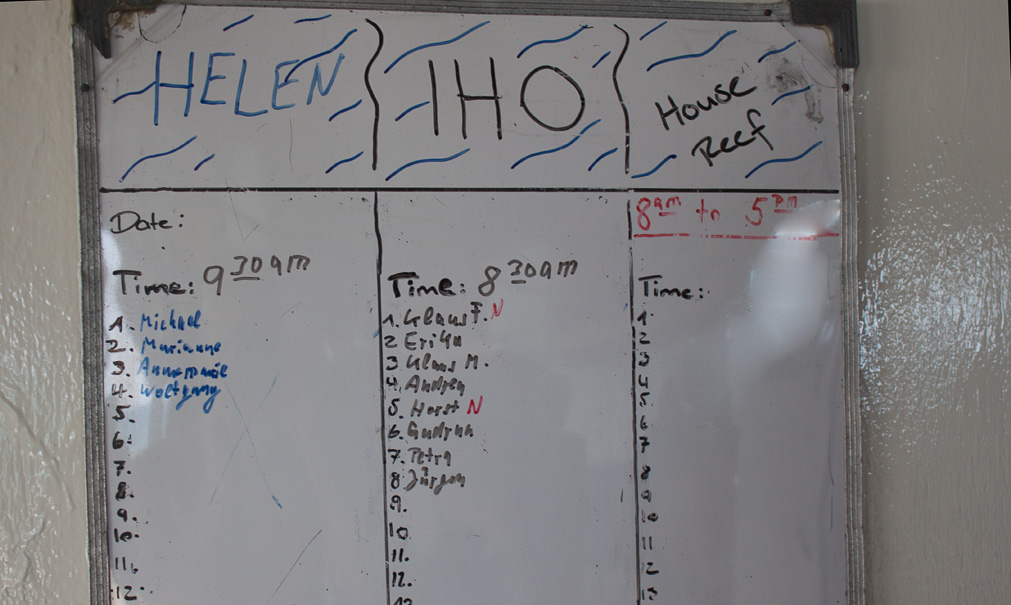 HELEN
Date:
Time: 9 30 am
1. Michael
2. Marianne
3. Annemarie
4. Wolfgang
5.
6.
7.
8.
9.
10.
11.
12.
IHO
Time: 8 30 am
1. Klaus F. N
2 Erika
3 Klaus M.
4. Andrea
5. Horst N
6. Gudrun
7. Petra
8 Jürgen
9.
10
11.
12.
13
House
Reef
8am to 5pm
Time:
1
2
3
4
5
6
7
8
9
10
11
12
13